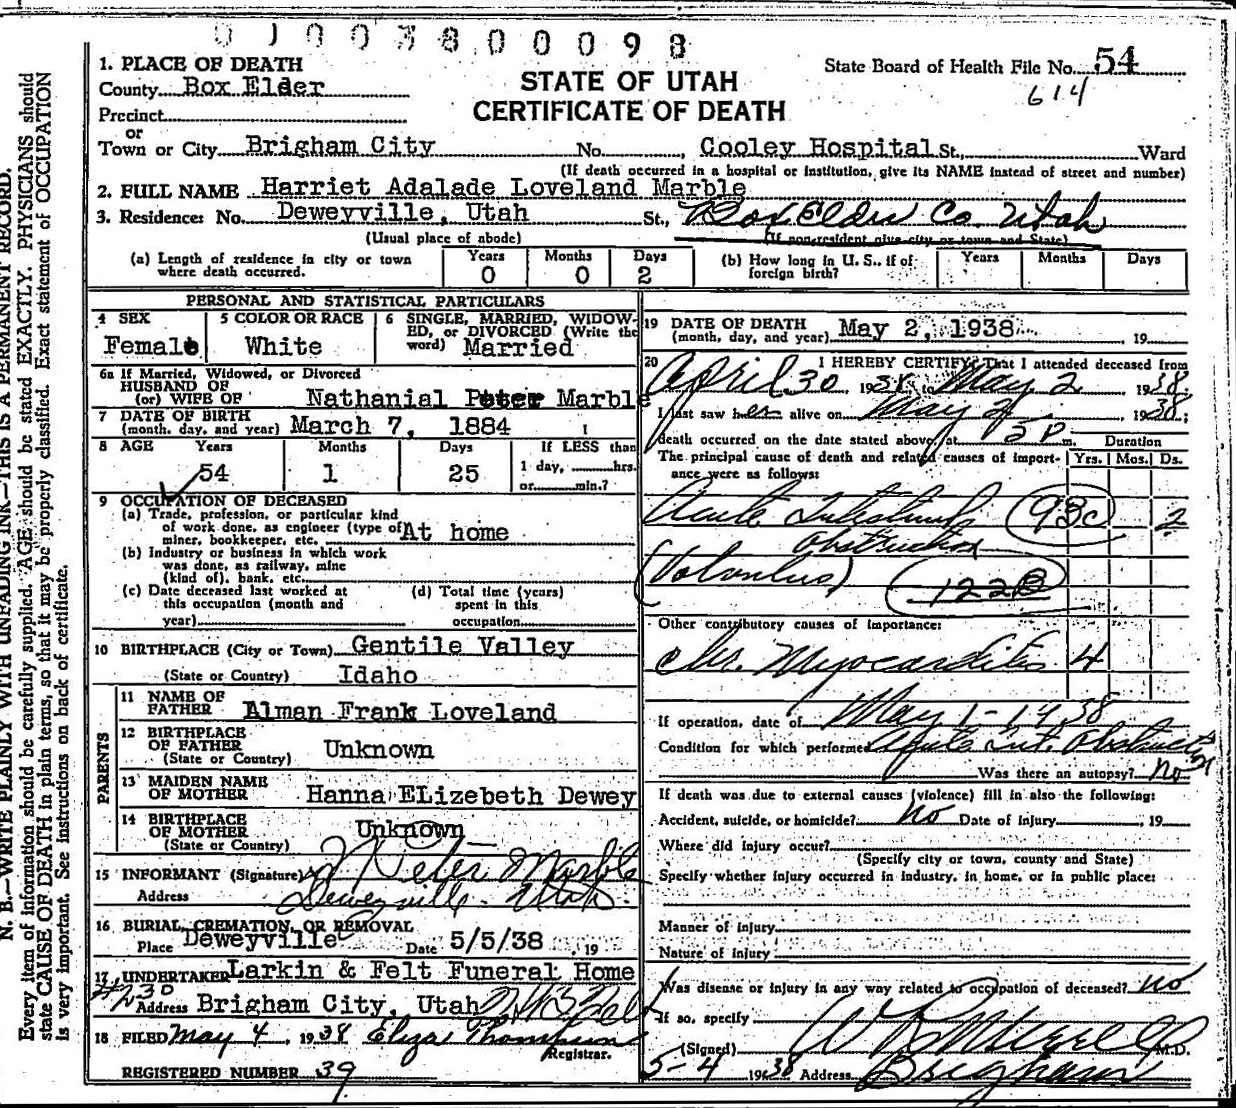 0 1 0 0 3 8 0 0 0 9 8
1. PLACE OF DEATH
County Box Elder
Precinct
or
Town or City Brigham City No. , Cooley Hospital St., Ward
STATE OF UTAH
CERTIFICATE OF DEATH
State Board of Health File No. 54
614
(If death occurred in a hospital or institution, give its NAME instead of street and number)
2. FULL NAME Harriet Adalade Loveland Marble
3. Residence: No. Deweyville, Utah St., Box Elder Co. Utah
(Usual place of abode) (If nonresident give city or town and State)
(a) Length of residence in city or town where death occurred. Years 0 Months 0 Days 2
(b) How long in U. S., if of foreign birth? Years Months Days
PERSONAL AND STATISTICAL PARTICULARS
4 SEX Female
5 COLOR OR RACE White
6 SINGLE, MARRIED, WIDOWED, or DIVORCED (Write the word) Married
6a If Married, Widowed, or Divorced
HUSBAND OF
(or) WIFE OF Nathanial Peter Marble
7 DATE OF BIRTH
(month, day, and year) March 7, 1884
8 AGE Years 54 Months 1 Days 25
If LESS than
1 day, hrs.
or min.?
9 OCCUPATION OF DECEASED
(a) Trade, profession, or particular kind
of work done, as engineer (type of
miner, bookkeeper, etc. At home
(b) Industry or business in which work
was done, as railway, mine
(kind of), bank, etc.
(c) Date deceased last worked at
this occupation (month and
year)
(d) Total time (years)
spent in this
occupation
10 BIRTHPLACE (City or Town) Gentile Valley
(State or Country) Idaho
PARENTS
11 NAME OF
FATHER Alman Frank Loveland
12 BIRTHPLACE
OF FATHER
(State or Country) Unknown
13 MAIDEN NAME
OF MOTHER Hanna ELizebeth Dewey
14 BIRTHPLACE
OF MOTHER
(State or Country) Unknown
15 INFORMANT (Signature) N Peter Marble
Address Deweyville - Utah.
16 BURIAL, CREMATION, OR REMOVAL
Place Deweyville Date 5/5/38 , 19
17 UNDERTAKER Larkin & Felt Funeral Home
#230
Address Brigham City, Utah
18 FILED May 4, 1938 Eliza Thompson
Registrar.
REGISTERED NUMBER 39
19 DATE OF DEATH
(month, day, and year) May 2, 1938 , 19
20 I HEREBY CERTIFY, That I attended deceased from
April 30 1938, to May 2 1938
I last saw her alive on May 2 1938;
death occurred on the date stated above, at 5 P m. Duration
The principal cause of death and related causes of import- Yrs. Mos. Ds.
ance were as follows:
Acute Intestinal 93c 2
Obstruction
(Volvulus) 122B
Other contributory causes of importance:
Chr. Myocarditis 4
If operation, date of May 1 - 1938
Condition for which performed Acute Int. Obstruction
Was there an autopsy? No
If death was due to external causes (violence) fill in also the following:
Accident, suicide, or homicide? No Date of injury , 19
Where did injury occur?
(Specify city or town, county and State)
Specify whether injury occurred in industry, in home, or in public place:
Manner of injury
Nature of injury
Was disease or injury in any way related to occupation of deceased? no
If so, specify
(Signed) M.D.
5-4 1938 Address Brigham
N. B.—WRITE PLAINLY WITH UNFADING INK—THIS IS A PERMANENT RECORD.
Every item of information should be carefully supplied. AGE should be stated EXACTLY. PHYSICIANS should
state CAUSE OF DEATH in plain terms, so that it may be properly classified. Exact statement of OCCUPATION
is very important. See instructions on back of certificate.